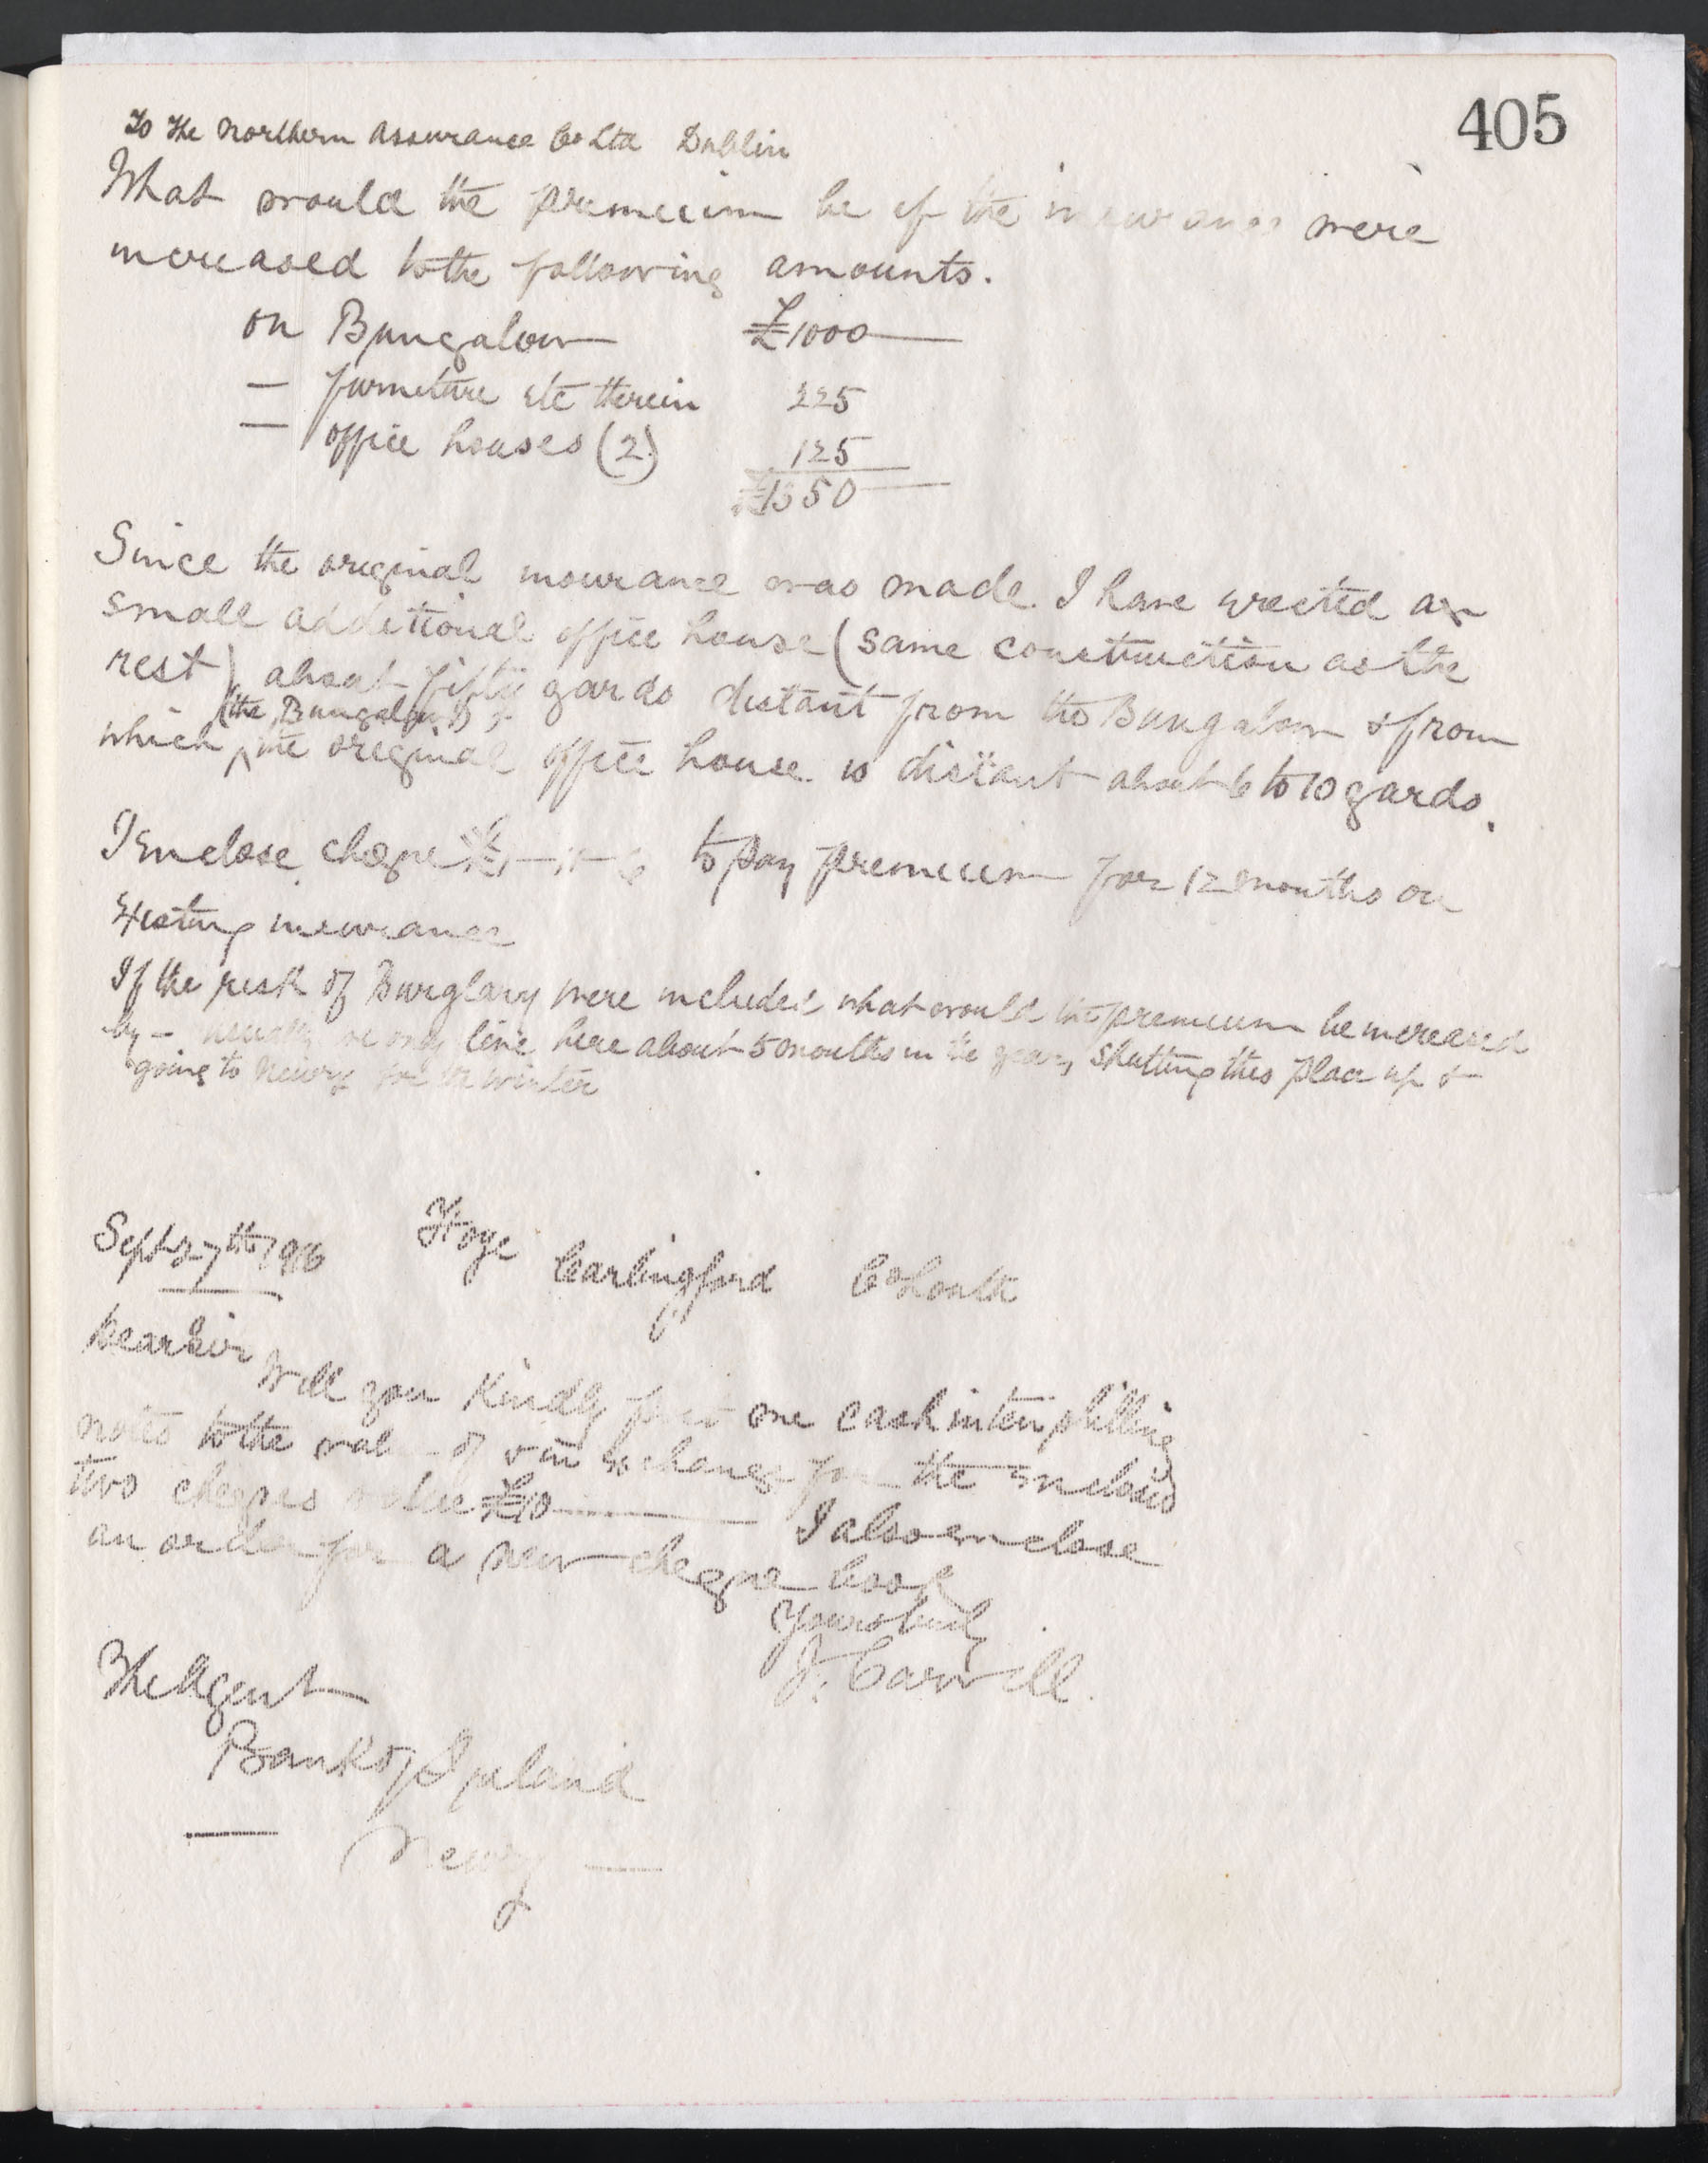 405
To the Northern Assurance Co Ltd Dublin
What would the premium be if the insurance were
increased to the following amounts.
on Bungalow £1000
— furniture etc therein 225
— office houses (2) 125
£1350
Since the original insurance was made I have erected a
small additional office house (same construction as the
rest) about fifty yards distant from the Bungalow & from
(the Bungalow)
which the original office house is distant about 6 to 10 yards.
I Enclose cheque to pay premium for 12 months on
Existing insurance
If the risk of Burglary were included what would the premium be increased
by - usually we only live here about 5 months in the year, shutting this place up &
going to Newry for the winter
Sept 27th 1916 Carlingford Co Louth
Dear Sir
Will you Kindly me cash in ten shilling
notes to the of in Exchange for the Enclosed
two cheques value £10 I also enclose
an order for a new cheque book
Yours truly
J. Carvill.
The Agent
Bank of Ireland
— Newry —